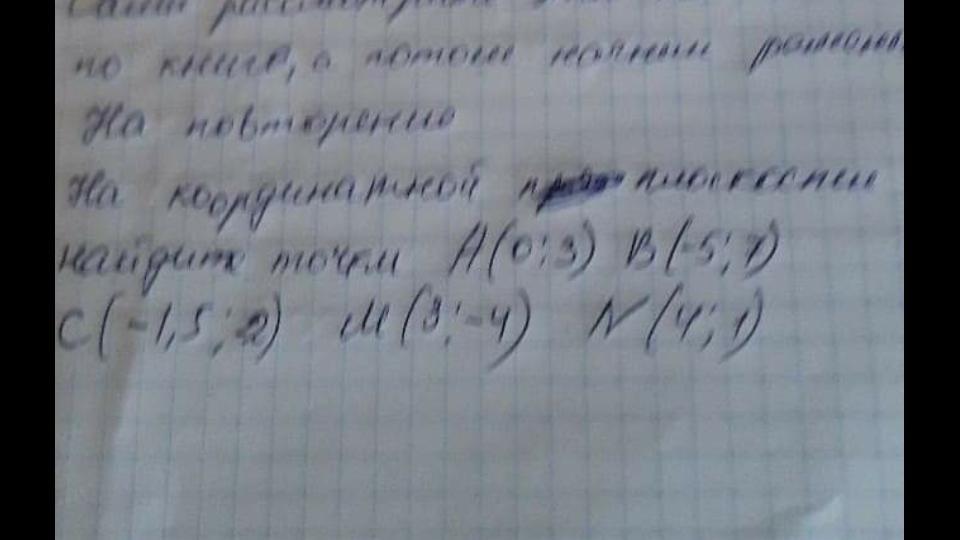 Сами
по книге, а потом начнём
На повторение
На координатной плоскости
найдите точки A(0;3) B(-5;7)
C(-1,5;2) M(3;-4) N(4;1)